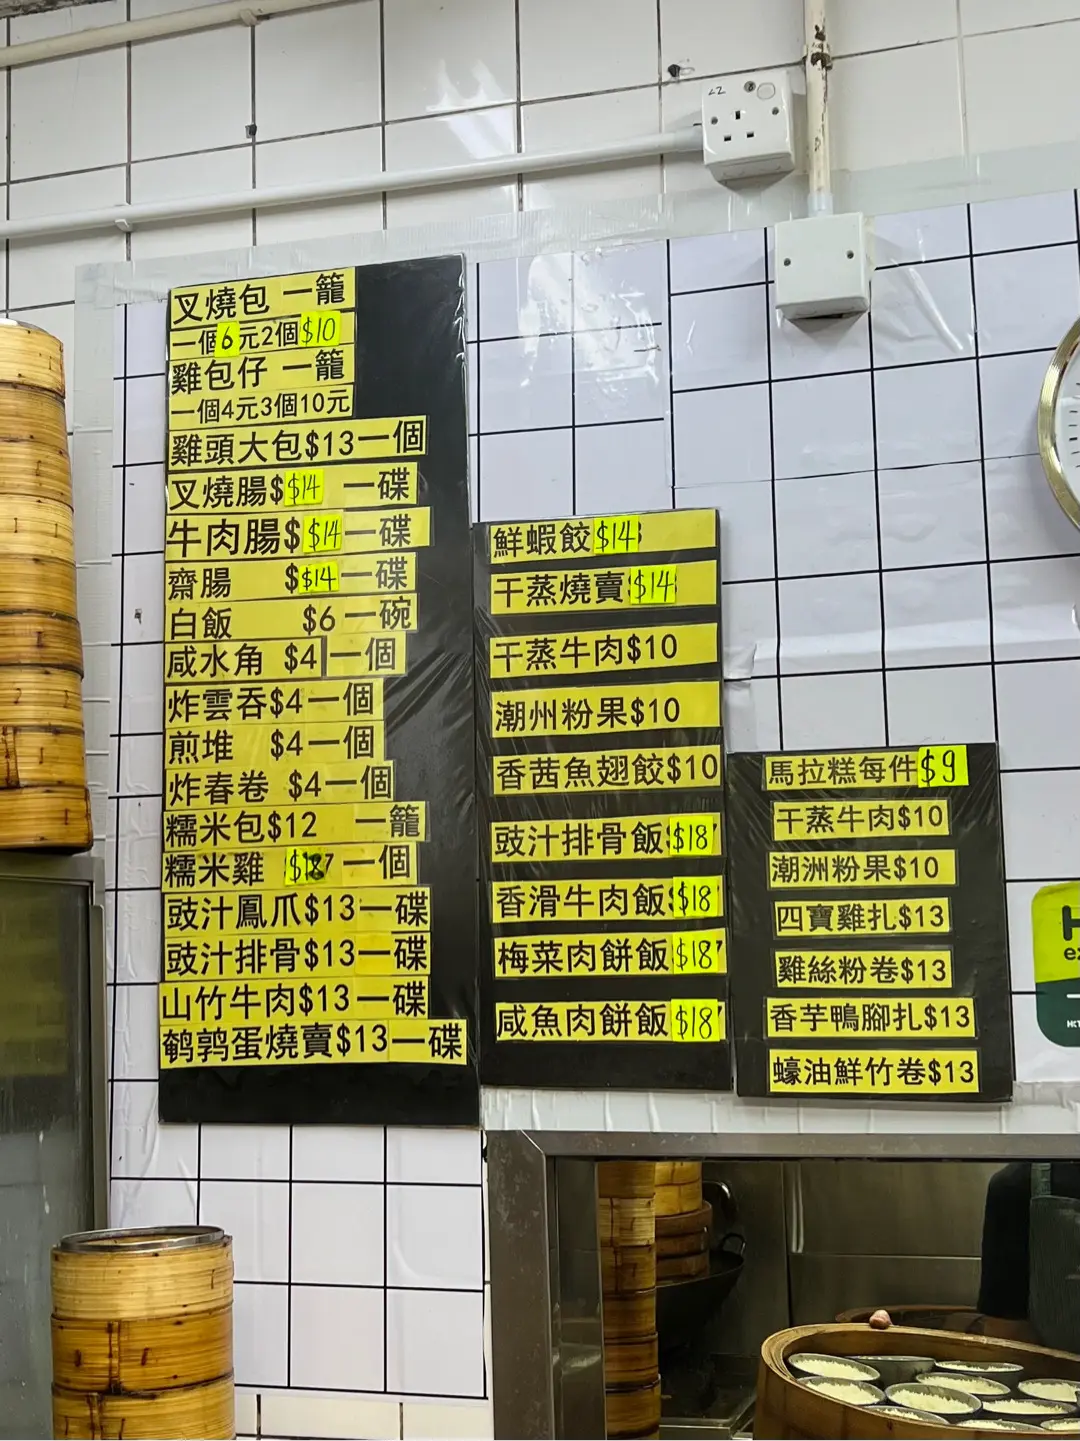 叉燒包 一籠
一個6元2個$10
雞包仔 一籠
一個4元3個10元
雞頭大包$13一個
叉燒腸$$14 一碟
牛肉腸$$14一碟
齋腸 $$14一碟
白飯 $6一碗
咸水角 $4一個
炸雲吞$4一個
煎堆 $4一個
炸春卷 $4一個
糯米包$12 一籠
糯米雞 $18一個
豉汁鳳爪$13一碟
豉汁排骨$13一碟
山竹牛肉$13一碟
鹌鹑蛋燒賣$13一碟
鮮蝦餃$14
干蒸燒賣$14
干蒸牛肉$10
潮州粉果$10
香茜魚翅餃$10
豉汁排骨飯$18
香滑牛肉飯$18
梅菜肉餅飯$18
咸魚肉餅飯$18
馬拉糕每件$9
干蒸牛肉$10
潮洲粉果$10
四寶雞扎$13
雞絲粉卷$13
香芋鴨腳扎$13
蠔油鮮竹卷$13